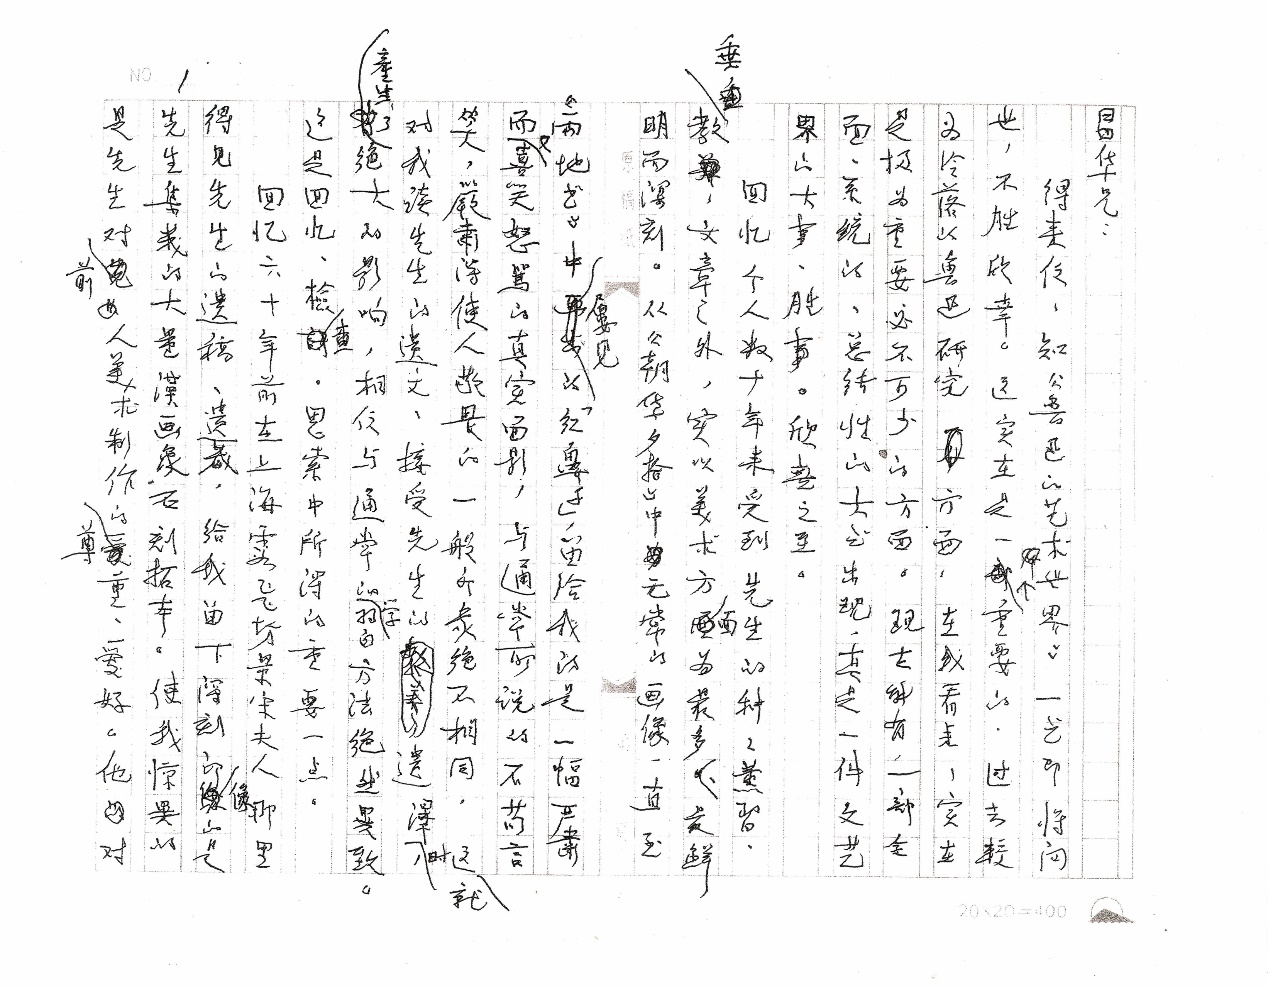 昌华兄：
得来信，知《鲁迅的艺术世界》一书即将问
世，不胜欣幸。这实在是一重要的，过去较
为冷落的鲁迅研究方面，在我看来，实在
是极为重要必不可少的方面。现在能有一部全
面、系统的、总结性的大书出现，真是一件文艺
界的大事、胜事。欣喜之至。
回忆个人数十年来受到先生的种种熏习、
垂教，文章之外，实以美术方面为最多、最鲜
明而深刻。从《朝华夕拾》中无常的画像一直到
《两地书》中屡见的红
留给我的是一幅严肃
而又喜笑怒骂的真实面影，与通常所说的不苟言
笑，严肃得使人敬畏的一般印象绝不相同，这就
对我读先生的遗文、接受先生的遗泽时，
产生了绝大的影响，相信与通常的学习方法绝然异致。
这是回忆、检查、思索中所得的重要一点。
回忆六十年前在上海霞飞坊景宋夫人那里
得见先生的遗稿、遗藏，给我留下深刻印象的是
先生集藏的大量汉画象石刻拓本。使我惊异的
是先生对前人美术制作的尊重、爱好。他对
NO. 1
20×20=400